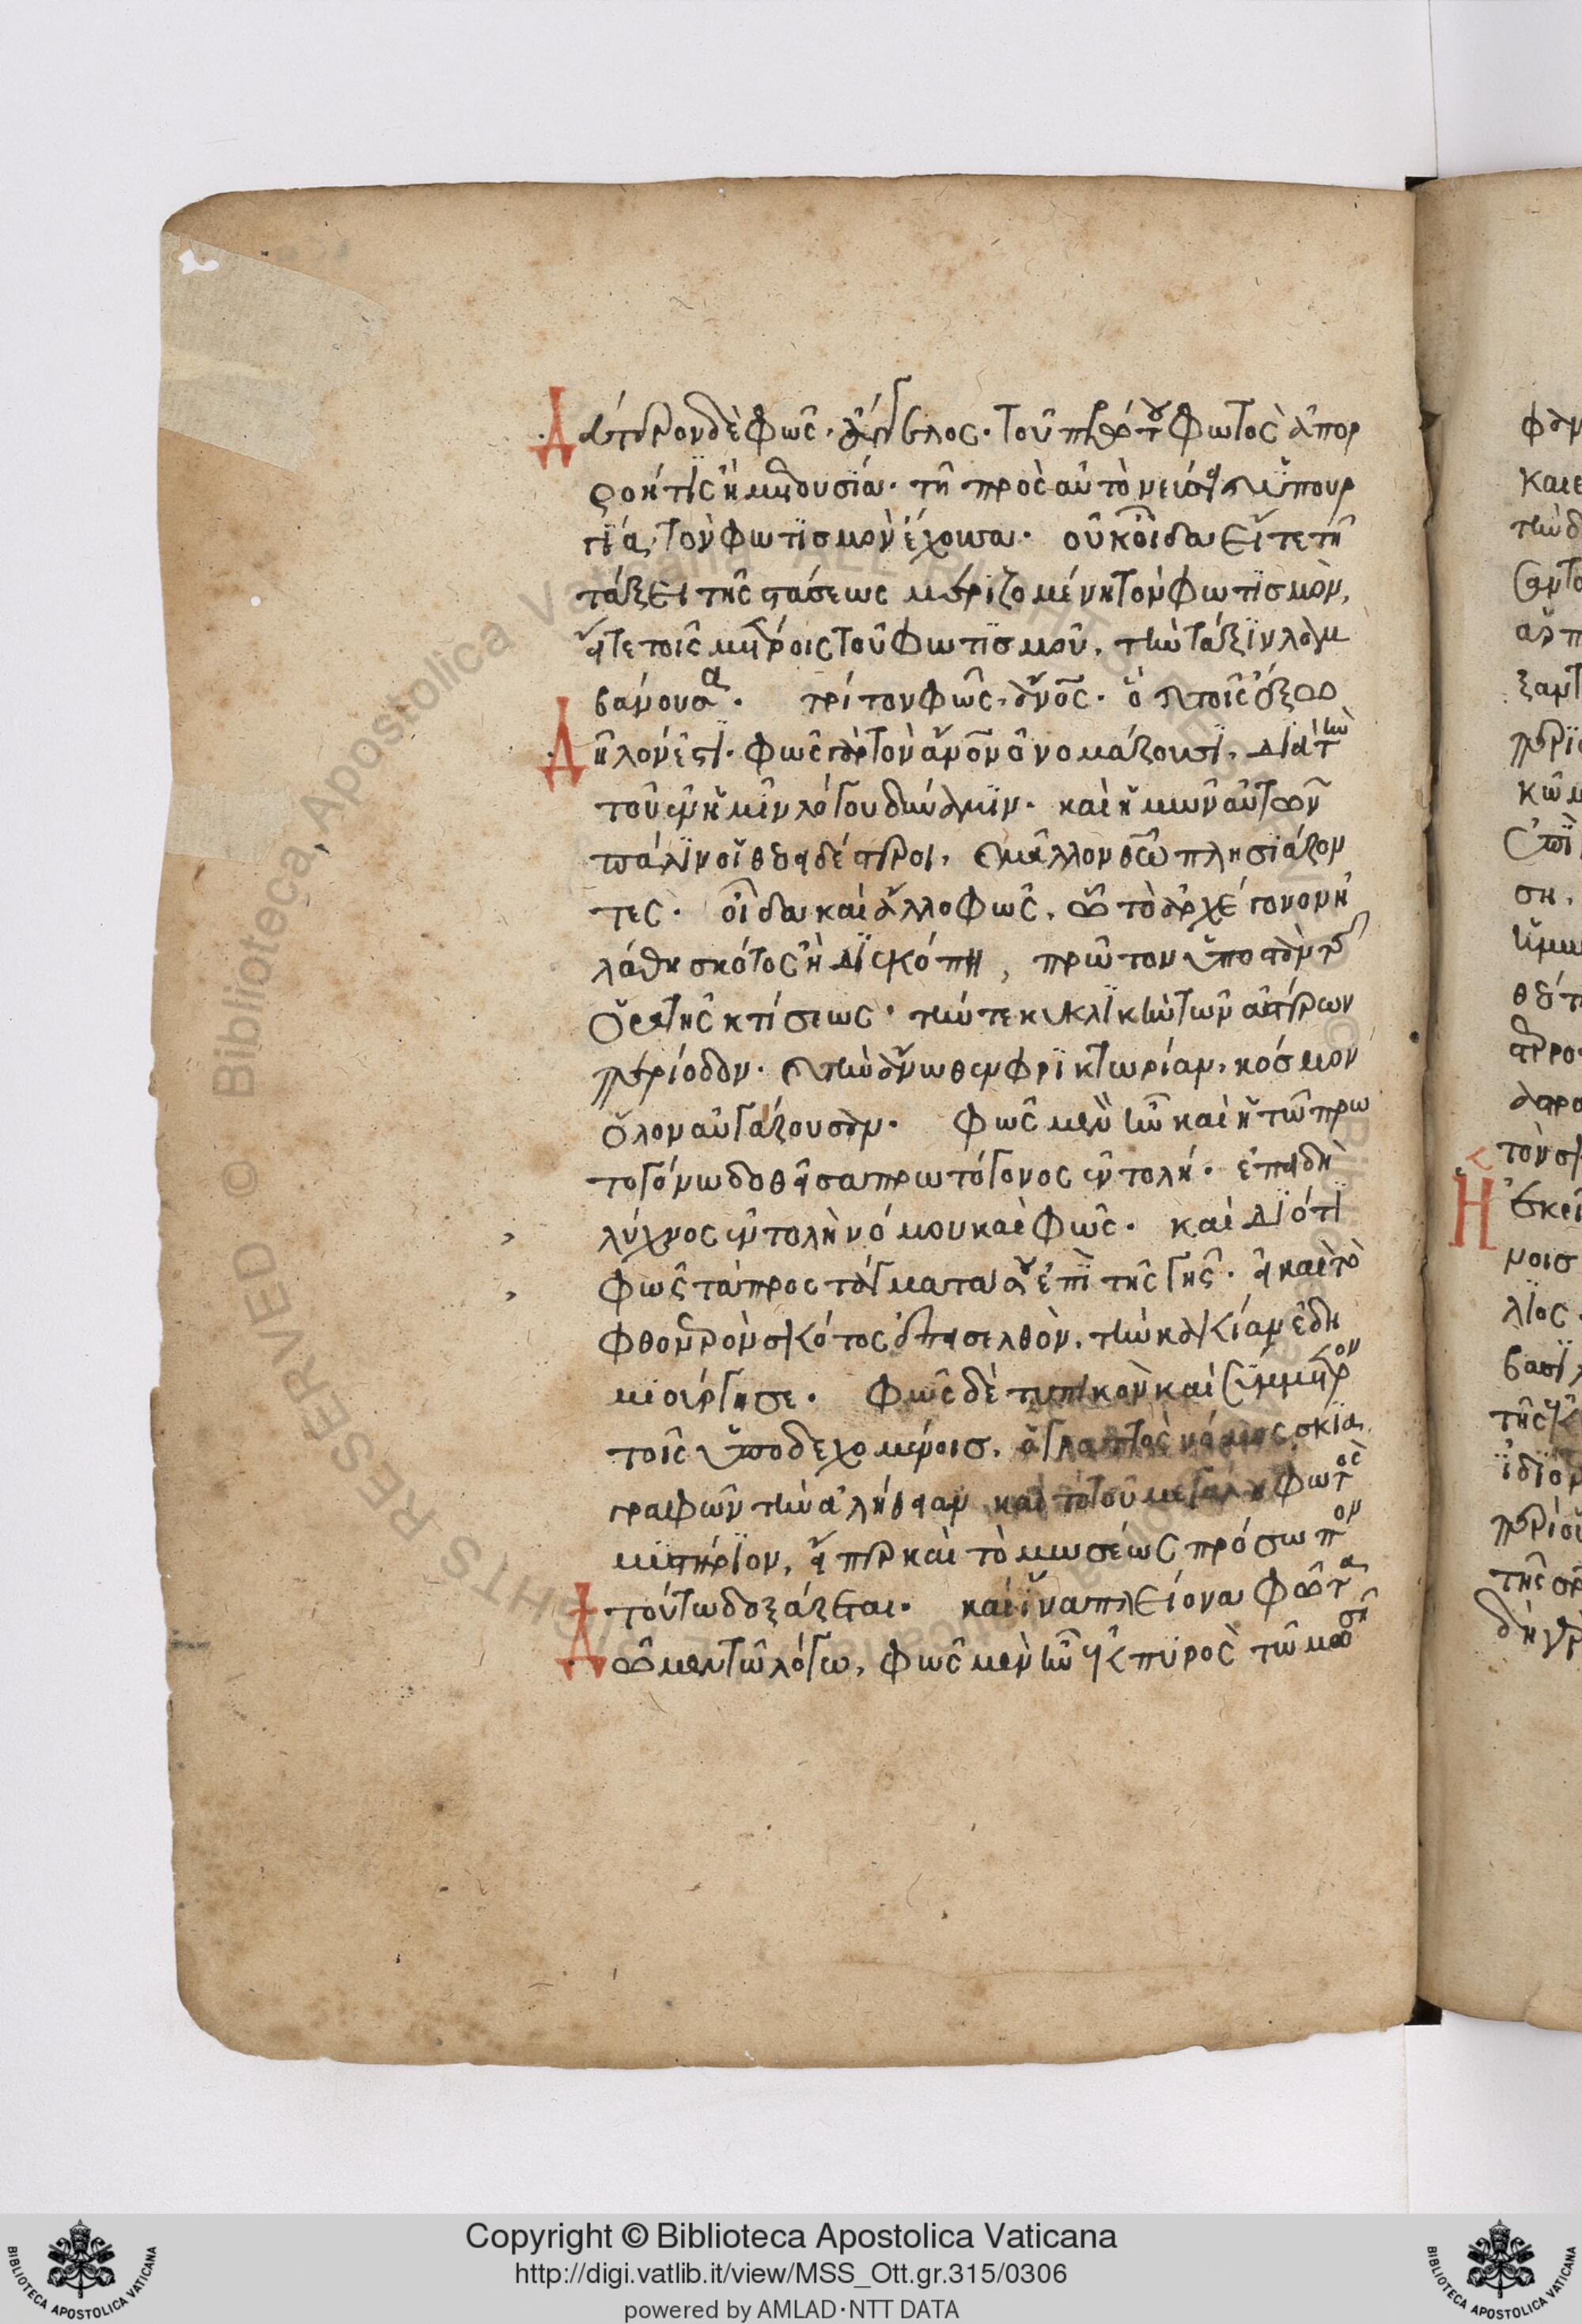 Δεύτερον δὲ φῶς, ἄγγελος· τοῦ πρώτου φωτὸς ἀπορ
ροή τις ἢ μετουσία· τῇ πρὸς αὐτὸ νεύσει καὶ ὑπουρ
γία, τὸν φωτισμὸν ἔχουσα· οὐκ οἶδα εἴτε τῇ
τάξει τῆς στάσεως μεριζομένη τὸν φωτισμὸν,
εἴτε τοῖς μέτροις τοῦ φωτισμοῦ, τὴν τάξιν λαμ
βάνουσα. τρίτον φῶς, ἄνος· ὃ καὶ τοῖς ἔξω
δῆλόν ἐστι· φῶς γὰρ τὸν ἄνον ὀνομάζουσι, διὰ τὴν
τοῦ ἐν ἡμῖν λόγου δύναμιν· καὶ ἡμῶν αὐτῶν
πάλιν οἱ θεοειδέστεροι, καὶ μᾶλλον θῶ πλησιάζον
τες· οἶδα καὶ ἄλλο φῶς, ὧ τὸ ἀρχέγονον ἠ
λάθη σκότος ἢ διεκόπη, πρῶτον ὑποστὰν τῆς
ὁρατῆς κτίσεως· τήν τε κυκλικὴν τῶν ἀστέρων
περίοδον· καὶ τὴν ἄνωθεν φρικτωρίαν, κόσμον
ὅλον αὐγάζουσαν· φῶς μὲν ἦν καὶ ἡ τῶ πρω
τογόνω δοθεῖσα πρωτόγονος ἐντολή· ἐπειδὴ
λύχνος ἐντολὴ νόμου καὶ φῶς· καὶ διότι
φῶς τὰ προστάγματά σου ἐπὶ τῆς γῆς· εἰ καὶ τὸ
φθονερὸν σκότος ἐπεισελθὸν, τὴν κακίαν ἐδη
μιούργησε· φῶς δὲ τυπικὸν καὶ σύμμετρον
τοῖς ὑποδεχομένοις, ὁ γραπτὸς νόμος, σκια
γραφῶν τὴν ἀλήθειαν καὶ τὸ τοῦ μεγάλου φωτὸς
μυστήριον, εἴπερ καὶ τὸ μωσέως πρόσωπον
τούτω δοξάζεται· καὶ ἵνα πλείονα φῶτα
δῶμεν τῶ λόγω, φῶς μὲν ἦν ἐκ πυρὸς τῶ μωσῇ
Copyright © Biblioteca Apostolica Vaticana
http://digi.vatlib.it/view/MSS_Ott.gr.315/0306
powered by AMLAD·NTT DATA